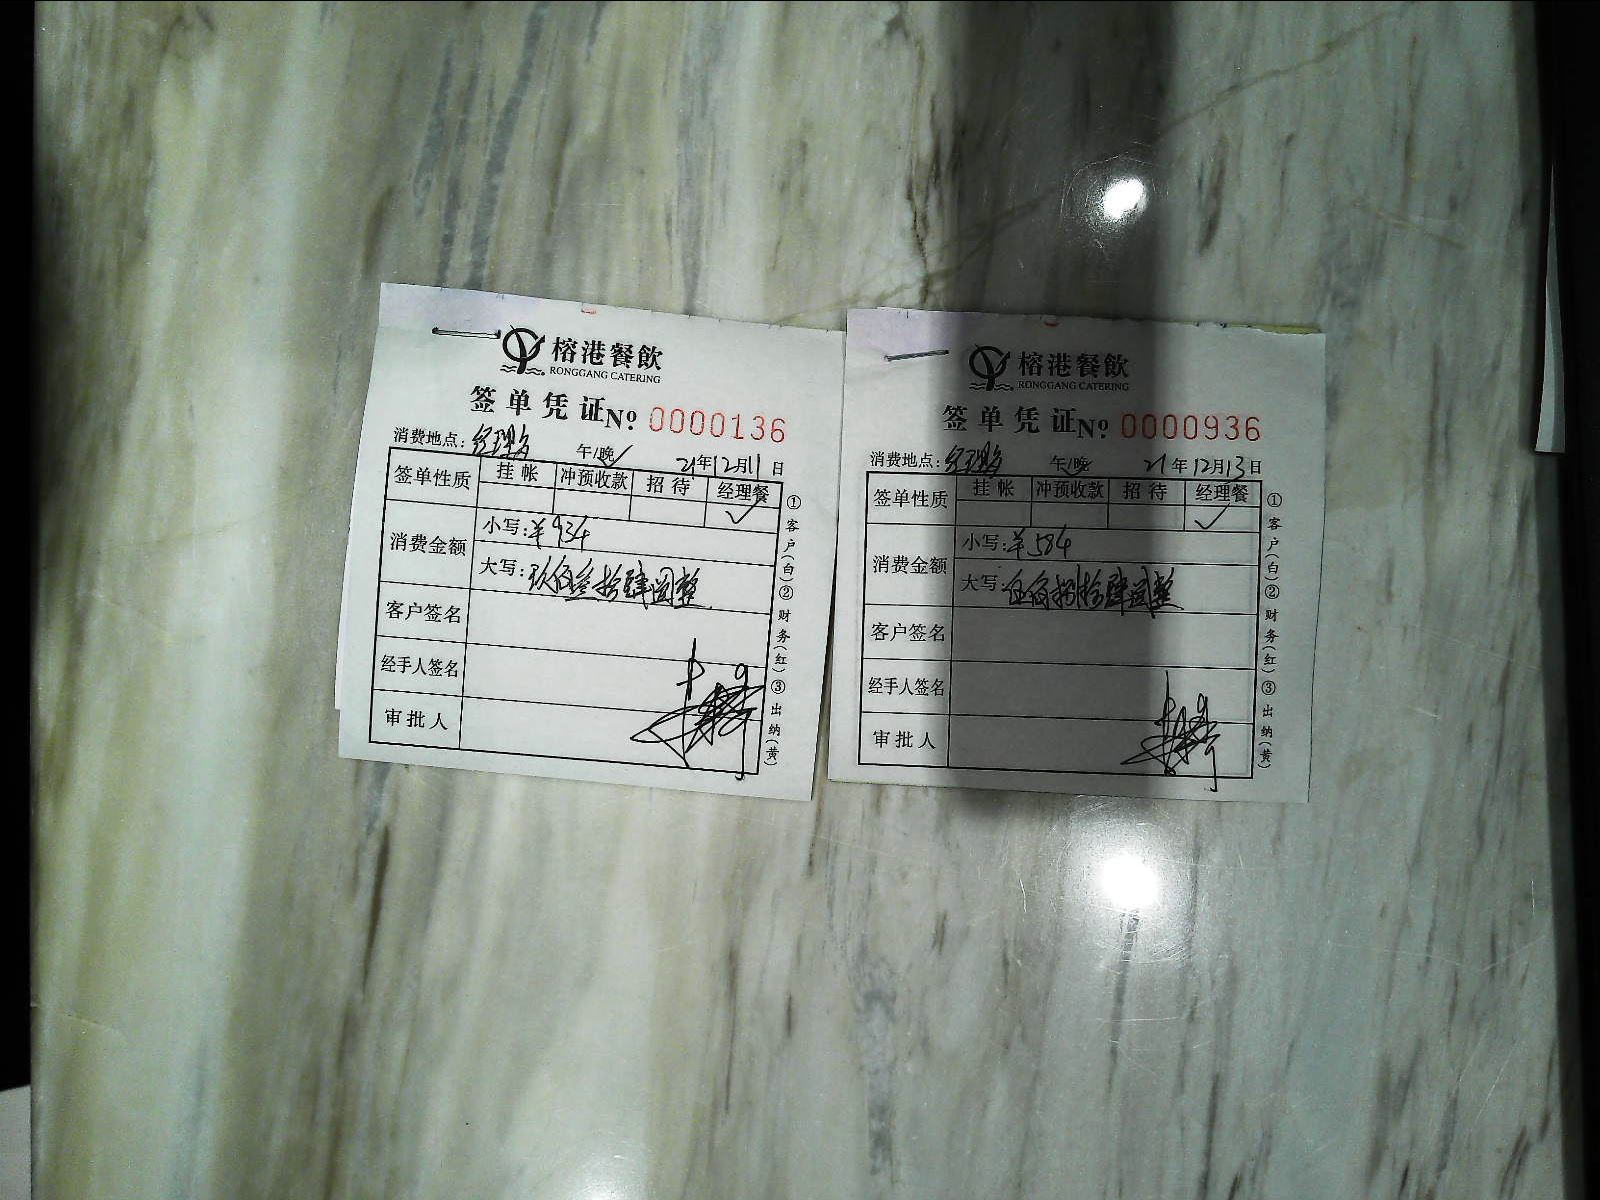 榕港餐飲
RONGGANG CATERING
签单凭证 No. 0000136
消费地点：经理餐 午/晚✓ 21年12月11日
签单性质 挂帐 冲预收款 招待 经理餐
✓
消费金额 小写：¥934
大写：玖佰叁拾肆圆整
客户签名
经手人签名
审批人
①客户(白)②财务(红)③出纳(黄)
榕港餐飲
RONGGANG CATERING
签单凭证 No. 0000936
消费地点：经理餐 午/晚 21年12月13日
签单性质 挂帐 冲预收款 招待 经理餐
✓
消费金额 小写：¥584
大写：伍佰捌拾肆圆整
客户签名
经手人签名
审批人
①客户(白)②财务(红)③出纳(黄)